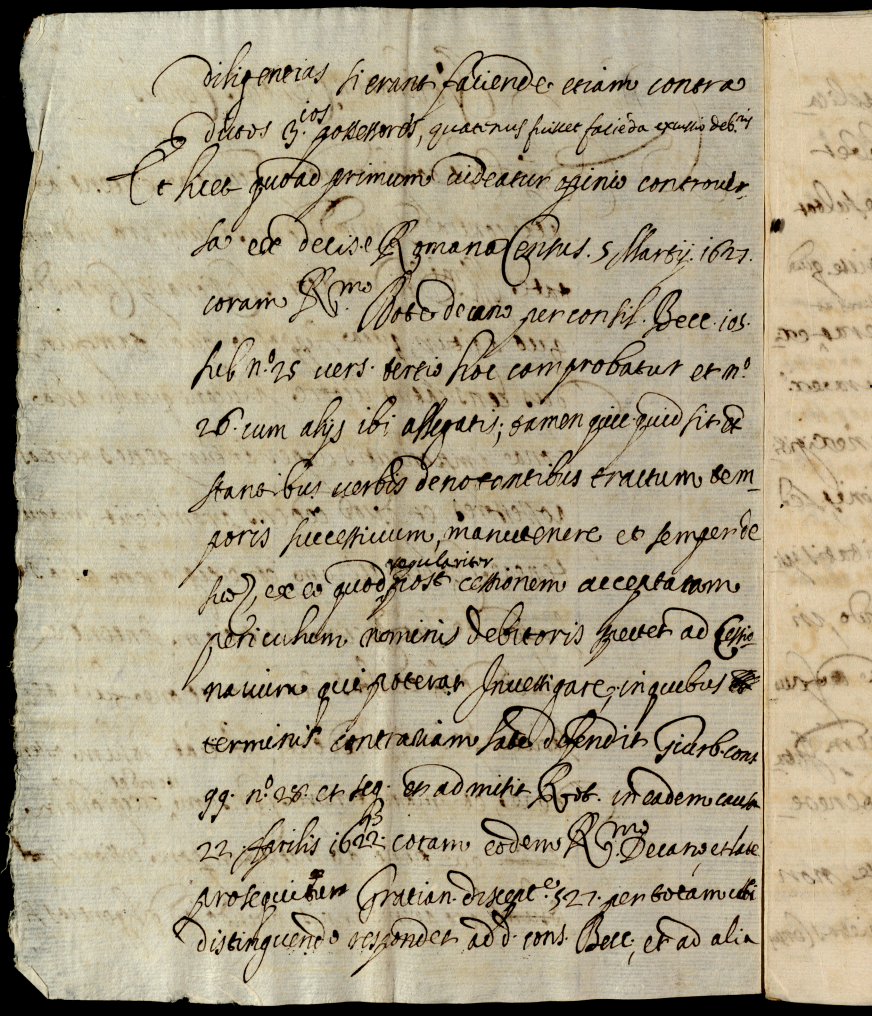 diligentias si erant faciende etiam contra
dictos 3.ios possessores, quatenus fuisset facieda excussio deb.ris
Et licet quoad primum videatur opinio controver-
sa ex decis.e Romana Census. 5 Martij. 1627.
coram R.mo Decano per consil. Becc. 105.
sub n.o 25 vers. tertio hoc comprobatur et n.o
26. cum alijs ibi allegatis; tamen quic quid sit et
stantibus verbis denotantibus tractum tem-
poris successivum, manutenere et semper de
ex eo quod regulariter post cessionem acceptatam
periculum nominis debitoris spectet ad Cessio-
narium qui poterat Investigare, in quibus
terminis contrariam late defendit Giurb. cons
99. n.o 28. et seq. et admitit Rot. in eadem causa
22. Aprilis 1622. coram eodem R.mo Decano, et late
prosequitur Gratian. discept.e 527. per totam ubi
distinguendo respondet ad d. cons. Becc., et ad alia